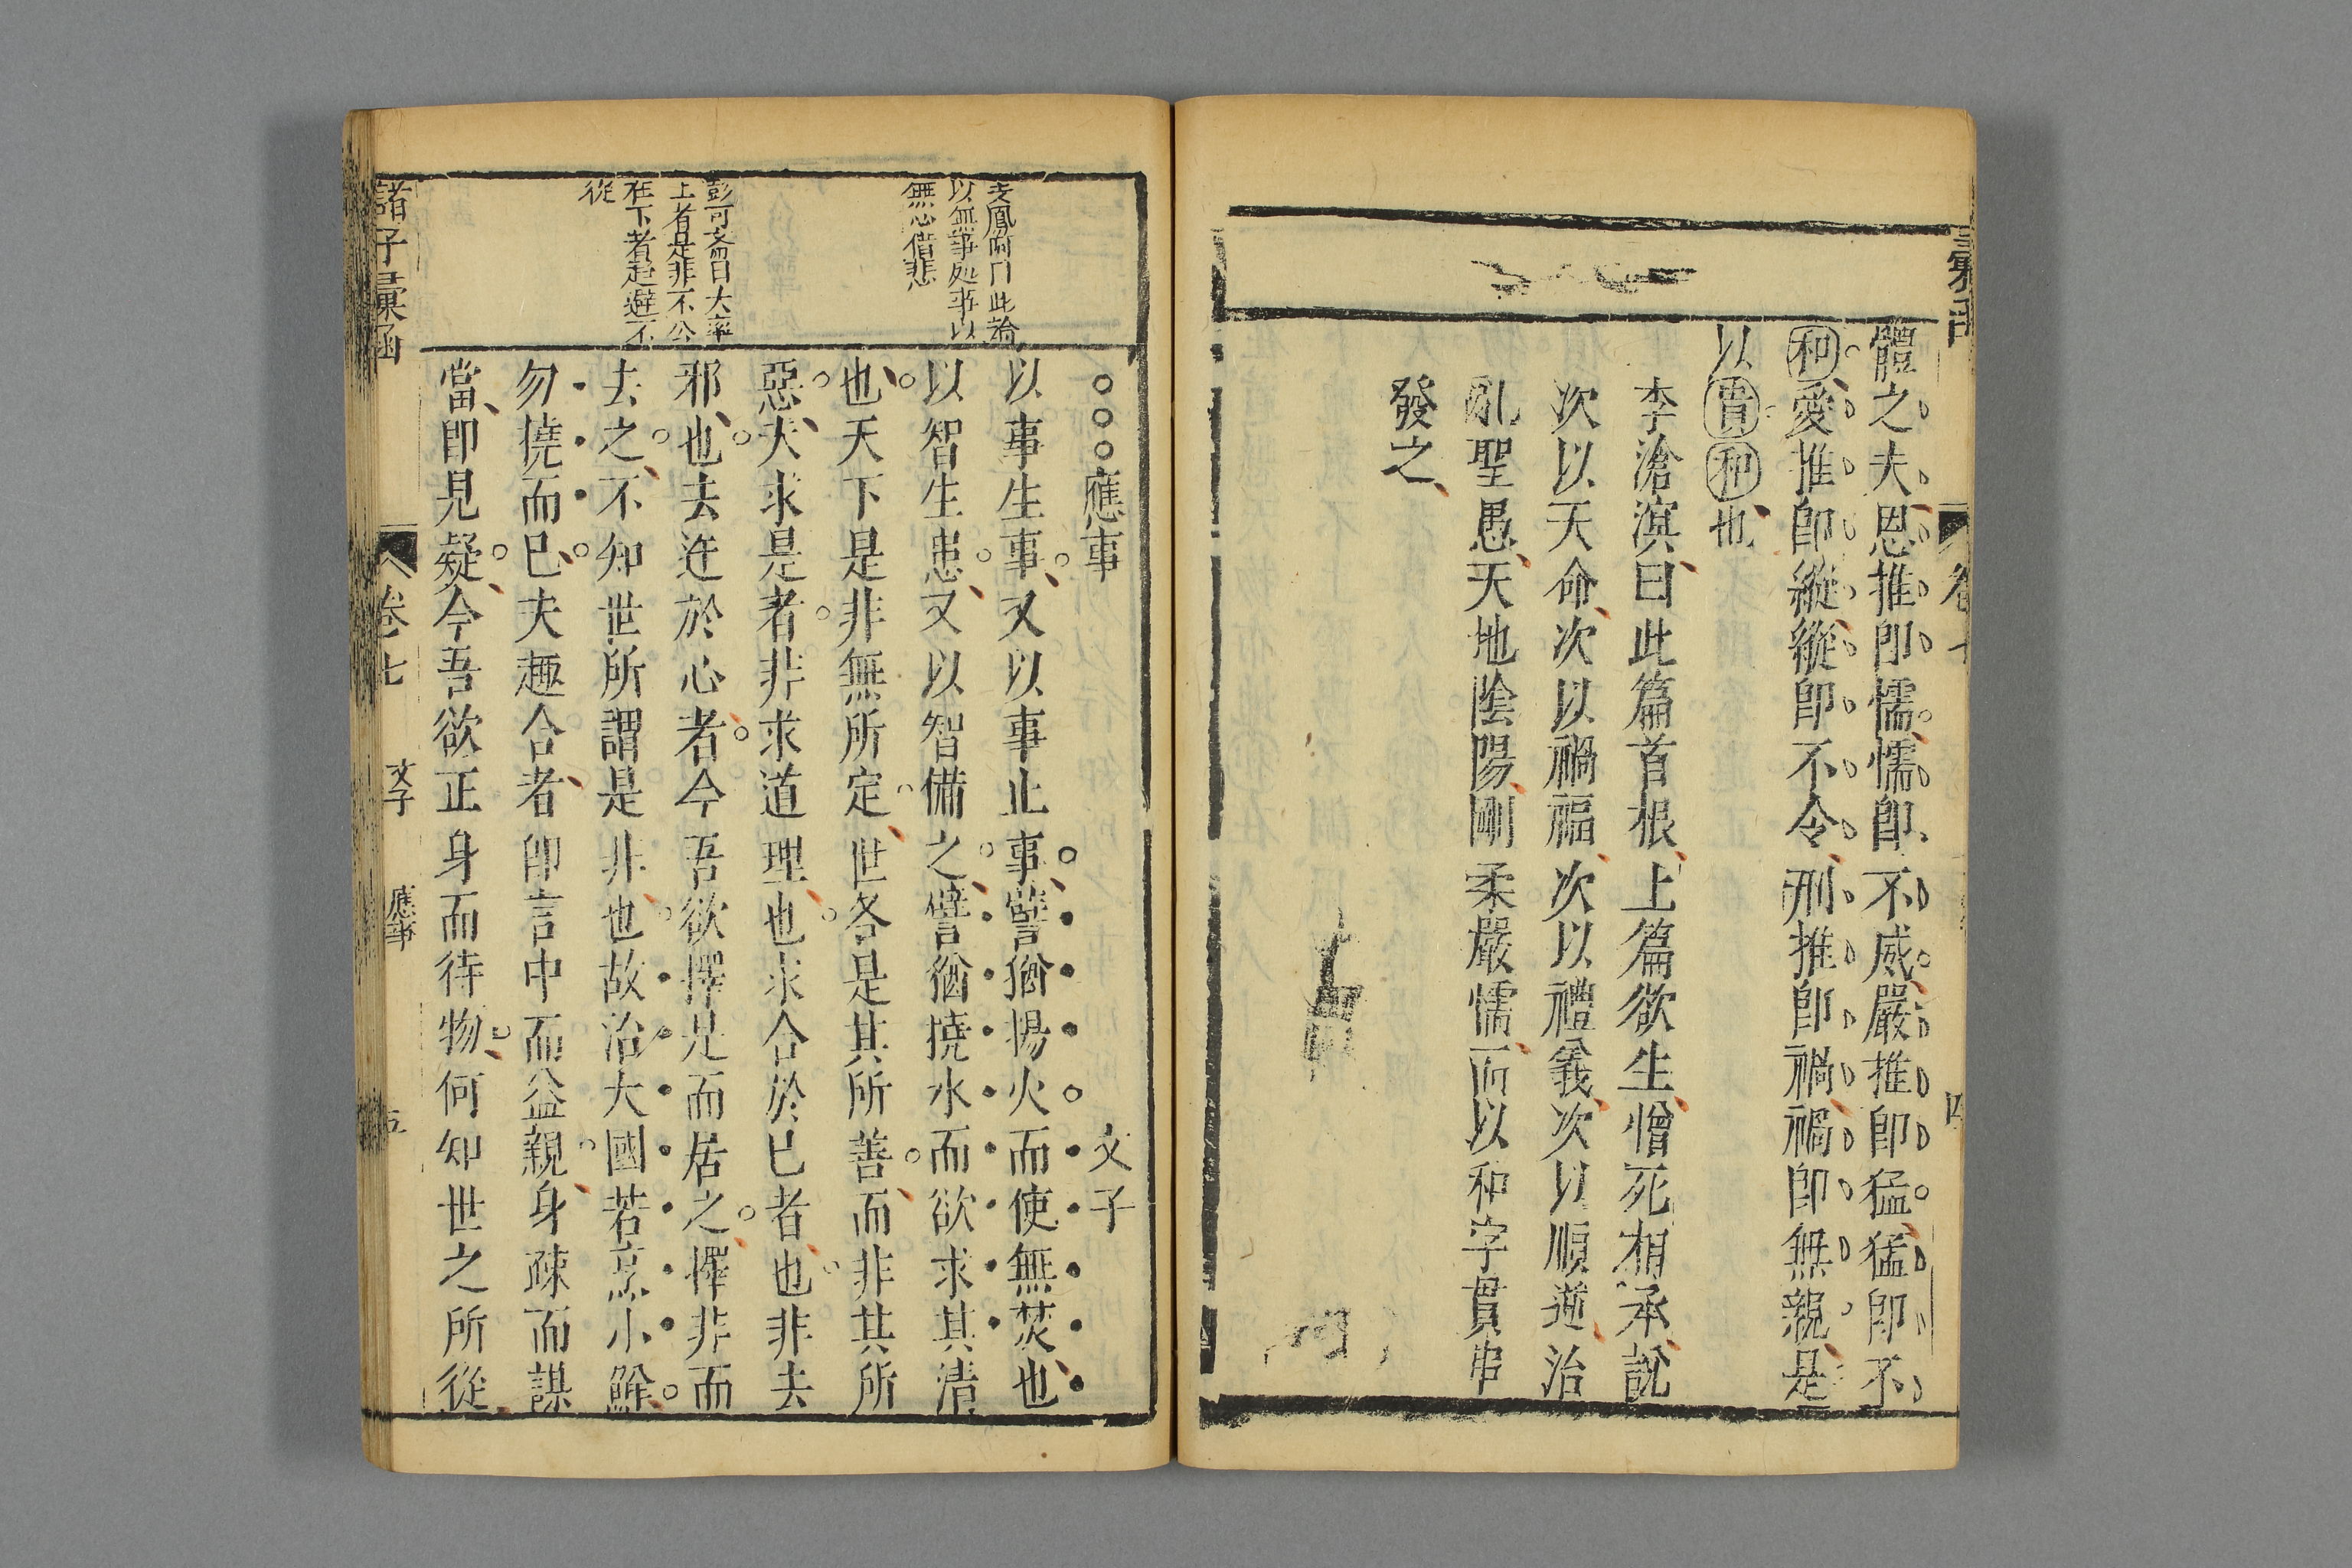 體之夫恩推卽懦懦卽不威嚴推卽猛猛卽不
和愛推卽縱縱卽不令刑推卽禍禍卽無親是
以貴和也
李滄溟曰此篇首根上篇欲生憎死相承說
次以天命次以禍福次以禮義次以順逆治
亂聖愚天地陰陽剛柔嚴懦而以和字貫串
發之
應事
文子
以事生事又以事止事譬猶揚火而使無焚也
以智生患又以智備之譬猶撓水而欲求其清
也天下是非無所定世各是其所善而非其所
惡夫求是者非求道理也求合於己者也非去
邪也去迕於心者今吾欲擇是而居之擇非而
去之不知世所謂是非也故治大國若烹小鮮
勿撓而已夫趣合者卽言中而益親身疎而謀
當卽見疑今吾欲正身而待物何知世之所從
此論
以無事処事以
無心借悲
彭可齋曰大率
上者是非不公
在下者趨避不
從
諸子彙函
卷七
文子
應事
五
彙函
卷七
四